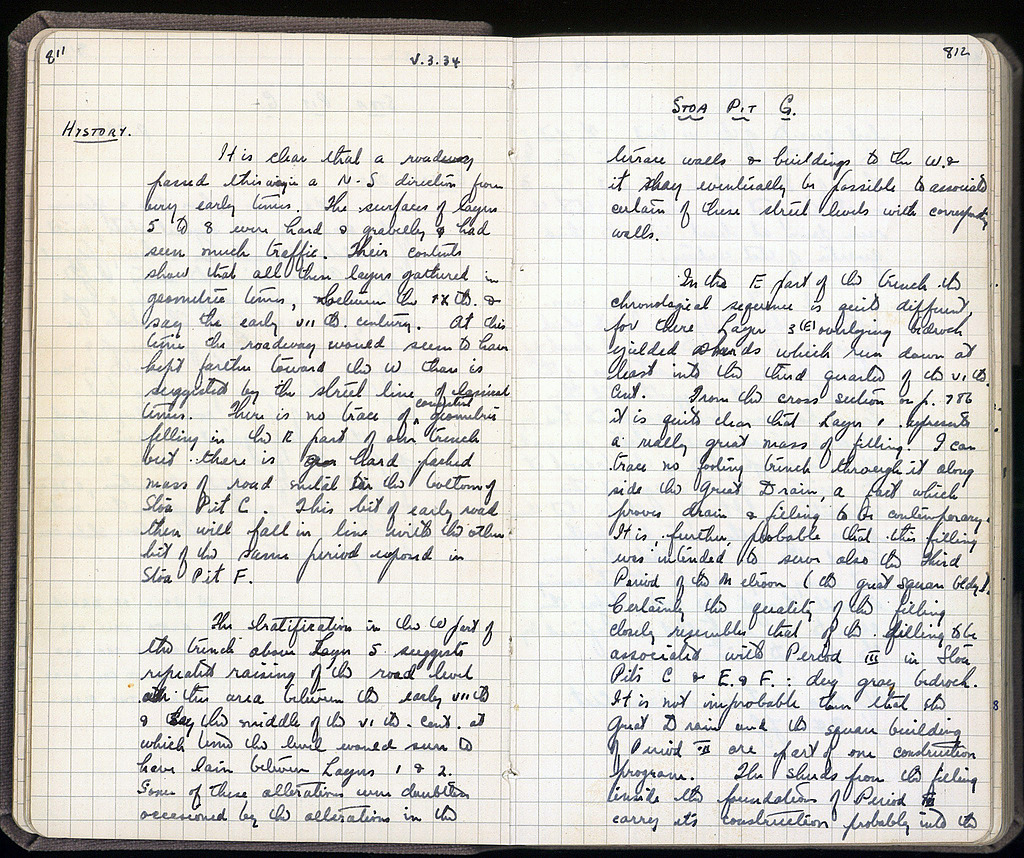 811
V.3.34
HISTORY.
It is clear that a roadway
passed this way in a N-S direction from
very early times. The surfaces of layers
5 to 8 were hard & gravelly & had
seen much traffic. Their contents
show that all these layers gathered in
geometric times, between the IX th. &
say the early VII th. century. At this
time the roadway would seem to have
kept farther toward the W than is
suggested by the street line of classical
times. There is no trace of compacted geometric
filling in the E part of our trench
but there is hard packed
mass of road metal in the bottom of
Stoa Pit C. This bit of early road
then will fall in line with the other
bit of the same period exposed in
Stoa Pit F.
The stratification in the W part of
the trench above Layer 5 suggests
repeated raising of the road level
in this area between the early VII th
& say the middle of the VI th. cent. at
which time the level would seem to
have lain between Layers 1 & 2.
Some of these alterations were doubtless
occasioned by the alterations in the
812
STOA PIT G.
terrace walls & buildings to the W. &
it may eventually be possible to associate
certain of these street levels with corresponding
walls.
In the E part of the trench the
chronological sequence is quite different,
for there Layer 3 (E) overlying bedrock
yielded sherds which run down at
least into the third quarter of the VI th.
Cent. From the cross section on p. 786
it is quite clear that Layer 1 represents
a really great mass of filling. I can
trace no footing trench through it along
side the Great Drain, a fact which
proves drain & filling to be contemporary.
It is, further, probable that this filling
was intended to serve also the Third
Period of the Metroon (the great square bldg).
Certainly the quality of the filling
closely resembles that of the filling to be
associated with Period III in Stoa
Pits C & E. & F.: dug gray bedrock.
It is not improbable then that the
Great Drain and the square building
of Period III are part of one construction
program. The sherds from the filling
inside the foundations of Period III
carry its construction probably into the